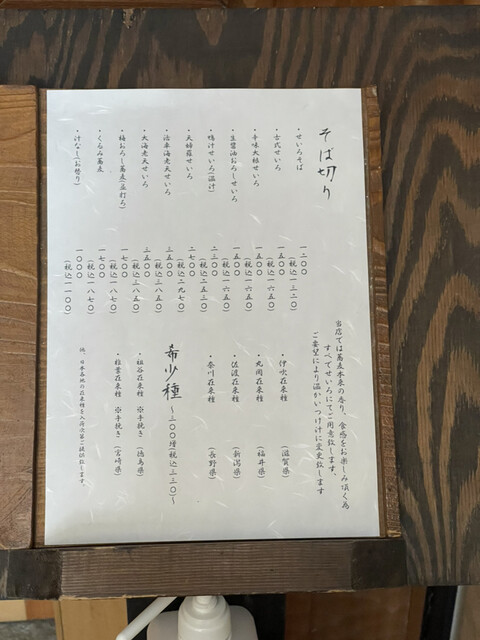 そば切り
・せいろそば 一二〇〇
(税込一三二〇)
・古代せいろ 一五〇〇
(税込一六五〇)
・辛味大根せいろ 一五〇〇
(税込一六五〇)
・生醤油おろしせいろ 一五〇〇
(税込一六五〇)
・鴨汁せいろ(温汁) 二三〇〇
(税込二五三〇)
・天婦羅せいろ 二七〇〇
(税込二九七〇)
・活車海老天せいろ 三五〇〇
(税込三八五〇)
・大海老天せいろ 三五〇〇
(税込三八五〇)
・梅おろし蕎麦(並打ち) 一七〇〇
(税込一八七〇)
・くるみ蕎麦 一七〇〇
(税込一八七〇)
・汁なし(お替り) 一〇〇〇
(税込一一〇〇)
当店では蕎麦本来の香り、食感をお楽しみ頂く為
すべてせいろにてご用意致します。
ご要望により温かいつけ汁に変更致します
・伊吹在来種 (滋賀県)
・丸岡在来種 (福井県)
・佐渡在来種 (新潟県)
・奈川在来種 (長野県)
希少種 ～三〇〇増(税込三三〇)～
・祖谷在来種 ※手挽き (徳島県)
・椎葉在来種 ※手挽き (宮崎県)
他、日本各地の在来種を入荷次第ご提供致します。